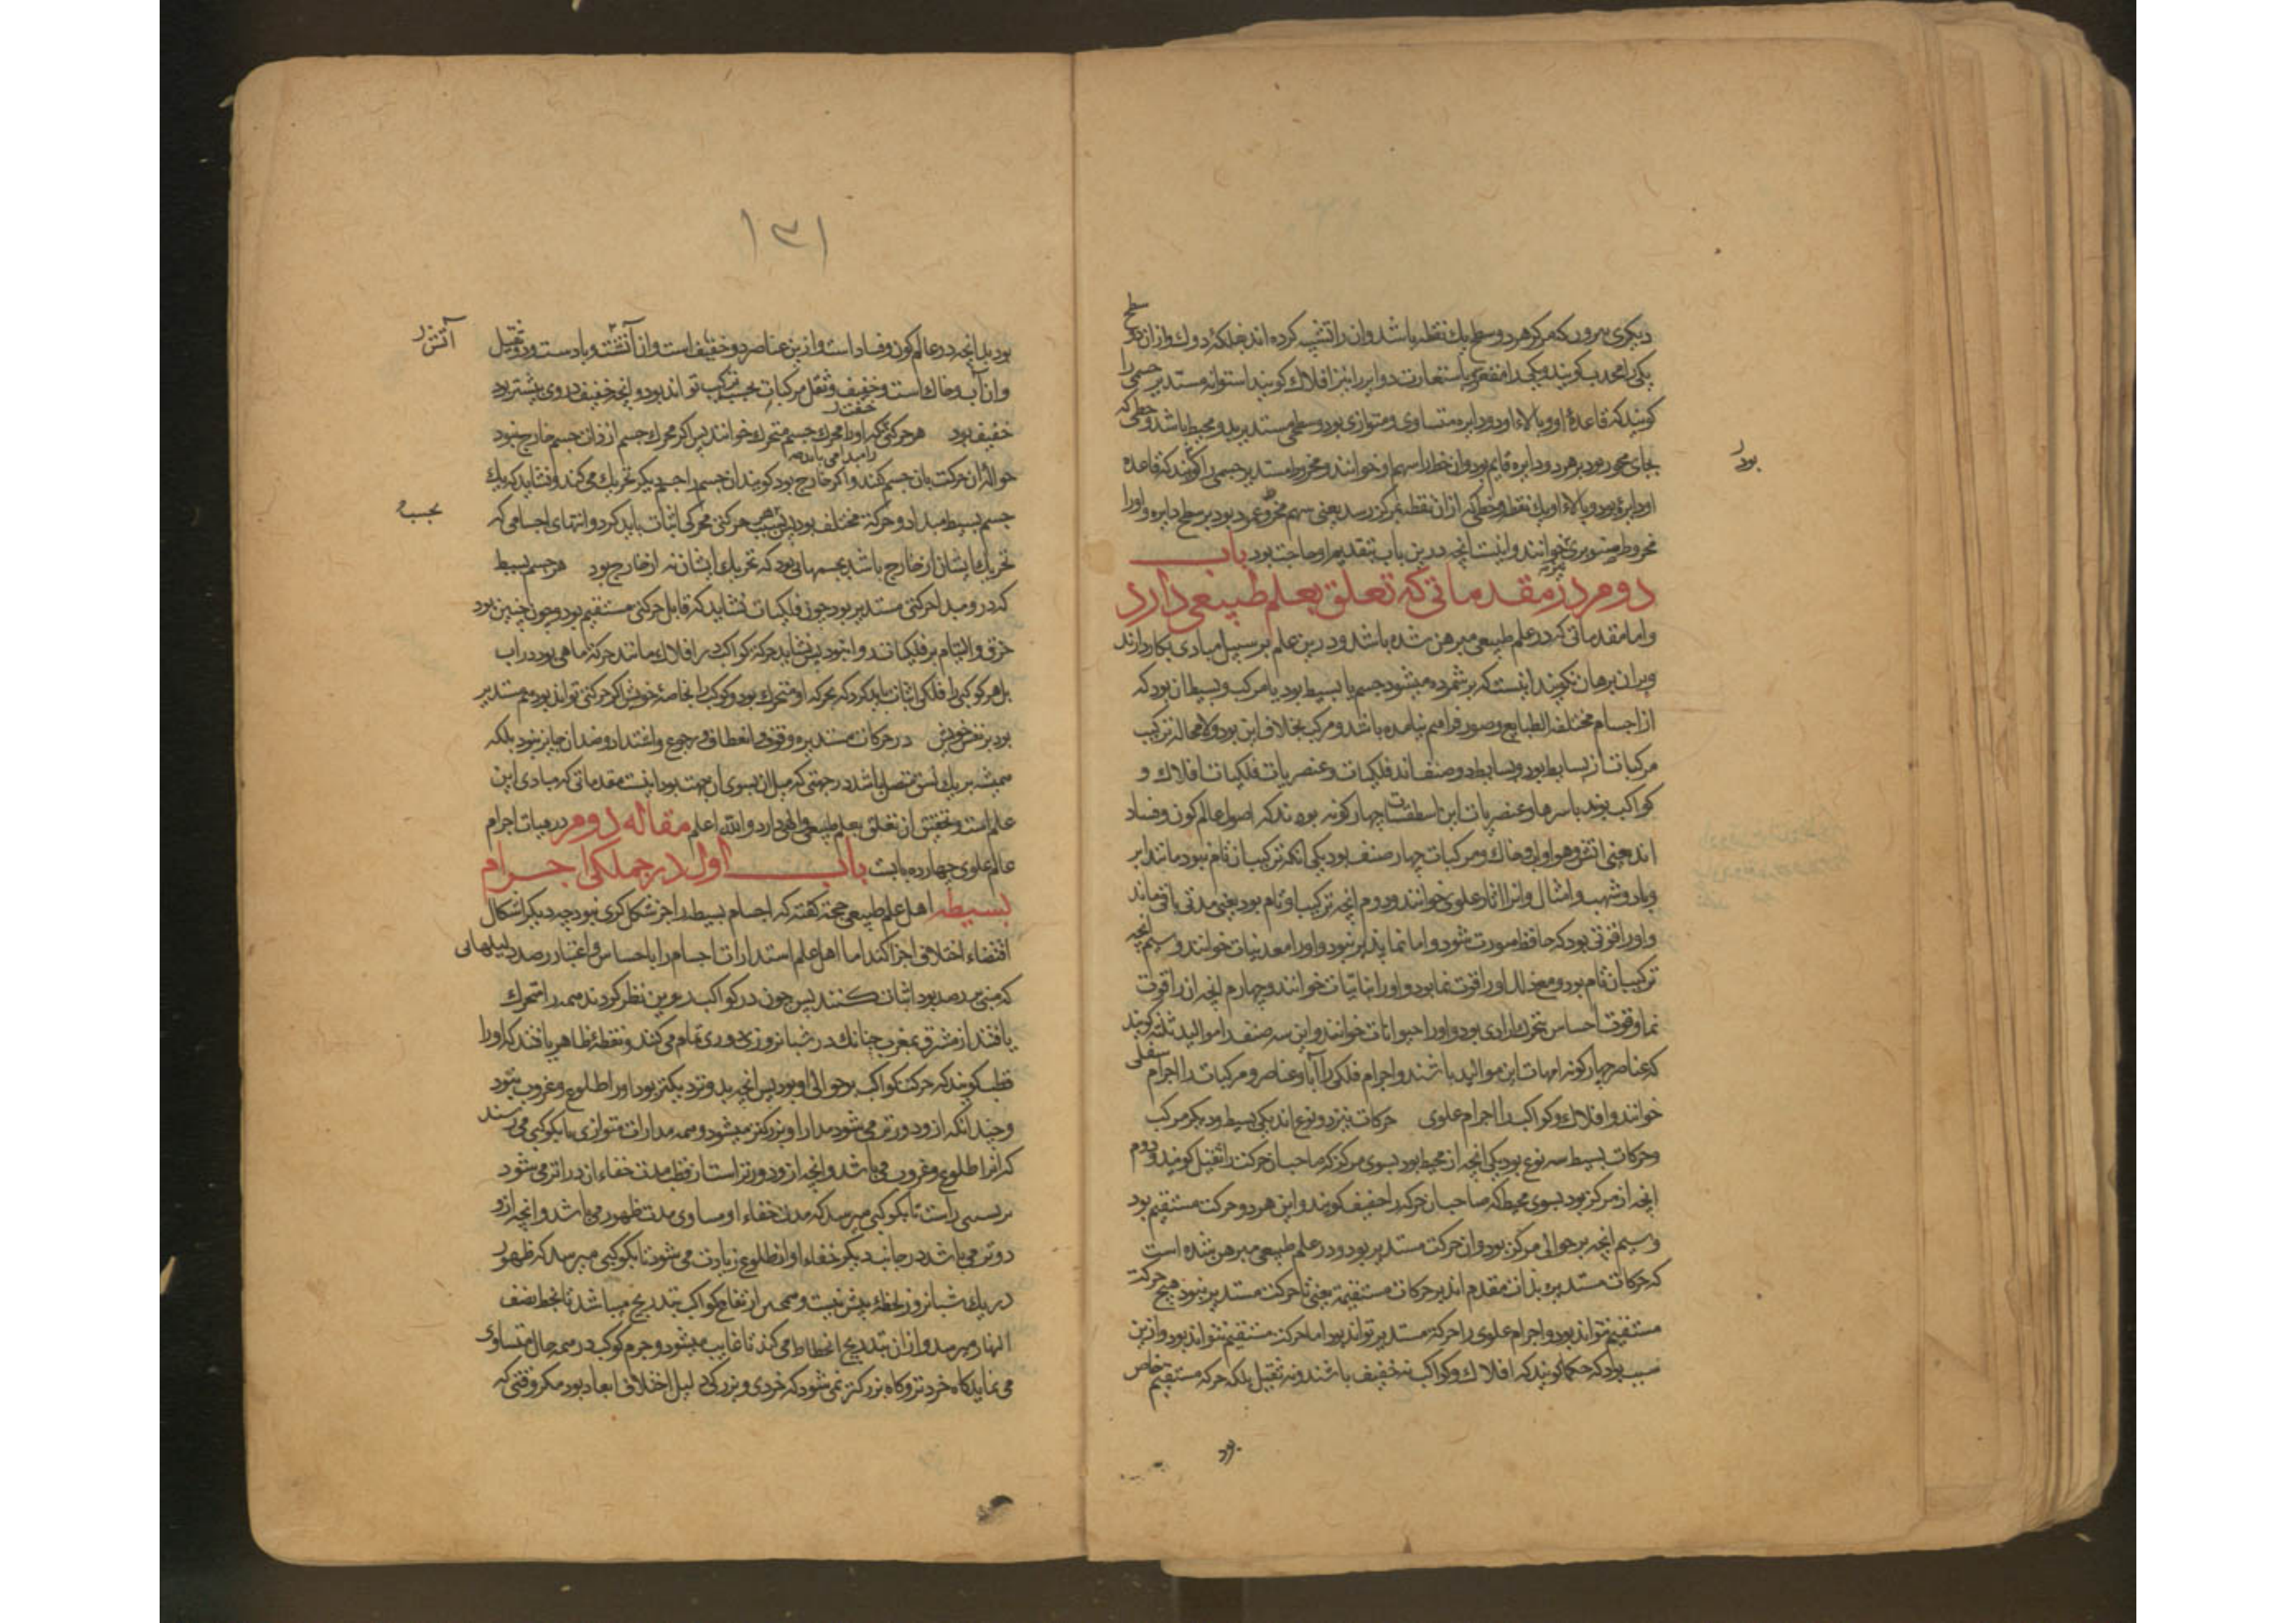 دیکری بیرون که مرکز هر دو سطح یک نقطه باشد و آن را تشبیه کرده اند بفلکهٔ دوک و از آن دو سطح
یکی را محدب کویند و یکی را مقعر و باستعارت دوایر را نیز افلاک کویند استوانه مستدیر جسمی را
کویند که قاعدهٔ او و بالاء او دو دایره متساوی و متوازی بود و سطحی مستدیر بدو محیط باشد و خطی که
بجای محور بود بر هر دو دایره قایم بود و آن خط را سهم او خوانند و مخروط مستدیر جسمی را کویند که قاعده
او دایرهٔ بود و بالاء او یک نقطه و خطی که از آن نقطه بمرکز رسد یعنی سهم مخروط عمود بود بر سطح دایره و او را
مخروط صنوبری خوانند و اینست انچه درین باب بتقدیم او حاجت بود باب
دوم در مقدماتی که تعلق بعلم طبیعی دارد
و اما مقدماتی که در علم طبیعی مبرهن شده باشد و درین علم بر سبیل مبادی بکار دارند
و بر ان برهان نکویند اینست که بر شمرده میشود جسم یا بسیط بود یا مرکب و بسیط ان بود که
از اجسام مختلف الطبایع و صور فراهم نیامده باشد و مرکب بخلاف این بود و لا محاله ترکیب
مرکبات از بسایط بود و بسایط دو صنف اند فلکیات و عنصریات فلکیات افلاک و
کواکب بوند باسرها و عنصریات این اسطقسات چهار کونه بوند که اصول عالم کون و فساد
اند یعنی اتش و هوا و اب و خاک و مرکبات چهار صنف بود یکی انکه ترکیب ان تام نبود مانند ابر
و باد و شهب و امثال و انرا اثار علوی خوانند و دوم انچه ترکیب او تام بود یعنی مدتی باقی ماند
و او را قوتی بود که حافظ صورت شود و اما نما پذیر نبود و او را معدنیات خوانند و سیم انچه
ترکیب ان تام بود و مع ذلک او را قوت نما بود و او را نباتیات خوانند و چهارم انچه ان را قوت
نما و قوت احساس و تحرک ارادی بود و او را حیوانات خوانند و این سه صنف را موالید ثلثه کویند
که عناصر چهار کونه امهات این موالید باشند و اجرام فلکی را آباء و عناصر و مرکبات را اجرام سفلی
خوانند و افلاک و کواکب را اجرام علوی حرکات نیز دو نوع اند یکی بسیط و دیکر مرکب
و حرکات بسیط سه نوع بود یکی انچه از محیط بود بسوی مرکز که صاحب ان حرکت را ثقیل کویند و دوم
انچه از مرکز بود بسوی محیط که صاحب ان حرکه را خفیف کویند و این هر دو حرکت مستقیم بود
و سیم انچه بر حوالی مرکز بود و ان حرکت مستدیر بود و در علم طبیعی مبرهن شده است
که حرکات مستدیره بذات مقدم اند بر حرکات مستقیمه یعنی تا حرکت مستدیر نبود هیچ حرکت
مستقیم نتواند بود و اجرام علوی را حرکة مستدیر تواند بود اما حرکت مستقیم نتواند بود و ازین
سبب بود که حکما کویند که افلاک و کواکب نه خفیف باشند و نه ثقیل بلکه حرکة مستقیم خاص
بود
بود
۱۳۱
بود بدانچه در عالم کون و فساد است و ازین عناصر دو خفیف است و ان آتشت و باد است و دو ثقیل
و ان آب و خاک است و خفیف و ثقل مرکبات بحسب ترکیب تواند بود و انچه خفیف در وی بیشتر بود
خفیف بود هر حرکتی که او را محرک جسم متحرک خوانند پس اکر محرک جسم از ذات جسم خارج نبود
حواله ان حرکت بان جسم کنند و اکر خارج بود کویند ان جسم را جسم دیکر تحریک می کند و نشاید که یک
جسم بسیط مبداء دو حرکة مختلف بود پس بسبب هر حرکتی محرکی اثبات باید کرد و انتهای اجسامی که
تحریک ایشان از خارج باشد بجسمهائی بود که تحریک ایشان نه از خارج بود هر جسم بسیط
که در و مبداء حرکتی مستدیر بود چون فلکیات نشاید که قابل حرکتی مستقیم بود و چون چنین بود
خرق و التیام بر فلکیات روا نبود پس نشاید حرکة کواکب در افلاک مانند حرکة ماهی بود در اب
بل هر کوکبی را فلکی اثبات باید کرد که بحرکه او متحرک بود و کوکب را بخاصهٔ خویش اکر حرکتی تواند بود هم مستدیر
بود بر نفس خویش در حرکات مستدیره وقوف و انعطاف و رجوع و اشتداد و ضد ان جایز نبود بلکه
همیشه بر یک نسق متصل باشد در جهتی که میل ان بسوی ان جهت بود اینست مقدماتی که مبادی این
علم است و تحقیق ان تعلق بعلم طبیعی و الهی دارد و الله اعلم مقاله دوم در هیات اجرام
عالم علوی چهارده بابت باب اول در جملکی اجرام
بسیطه اهل علم طبیعی حجة کفته که اجسام بسیط را جز شکل کری نبود چه دیکر اشکال
اقتضاء اختلاف اجزا کند اما اهل علم استدارات اجسام را باحساس و اعتبار رصد دلیلهائی
که مبنی بر رصد بود اثبات کنند پس چون در کواکب بوین نظر کردند همه را متحرک
یافتند از مشرق بمغرب چنانک در شبانروزی دوری تمام می کند و نقطهٔ ظاهر یافتند که او را
قطب کویند که حرکت کواکب بر حوالی او بود پس انچه بدو نزدیکتر بود او را طلوع و غروب نبود
و چندانکه از و دورتر می شود مدار او بزرکتر میشود و همه مدارات متوازی تا بکوکبی می رسند
که انرا طلوع و غروب می باشد و انچه از و دورتر است از قطب مدت خفاء ان درازتر می شود
بر نسبتی راست تا بکوکبی میرسد که مدت خفاء او مساوی مدت ظهور می باشد و انچه از و
دورتر می باشد در جانب دیکر خفاء او از طلوع زیادت می شود تا بکوکبی میرسد که ظهور
در یک شبانروز لحظهٔ بیش نیست و همچنین ارتفاع کواکب بتدریج میباشد تا بخط نصف
النهار میرسد و از ان بتدریج انحطاط می کند تا غایب میشود و جرم کوکب در همه حال متساوی
می نماید کاه خردتر و کاه بزرکتر نمی شود که خردی و بزرکی دلیل اختلاف ابعاد بود مکر وقتی که
آتش
بحسب